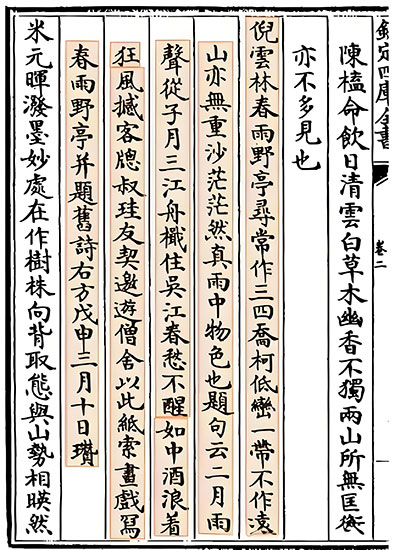 欽定四庫全書
卷二
陳榼命飲日清雲白草木幽香不獨兩山所無匡廬
亦不多見也
倪雲林春雨野亭尋常作三四喬柯低巒一帶不作遠
山亦無重沙茫茫然真雨中物色也題句云二月雨
聲從子月三江舟檝住吳江春愁不醒如中酒浪着
狂風撼客牕叔珪友契邀遊僧舍以此紙索畫戲寫
春雨野亭并題舊詩右方戊申三月十日瓚
米元暉潑墨妙處在作樹株向背取態與山勢相暎然